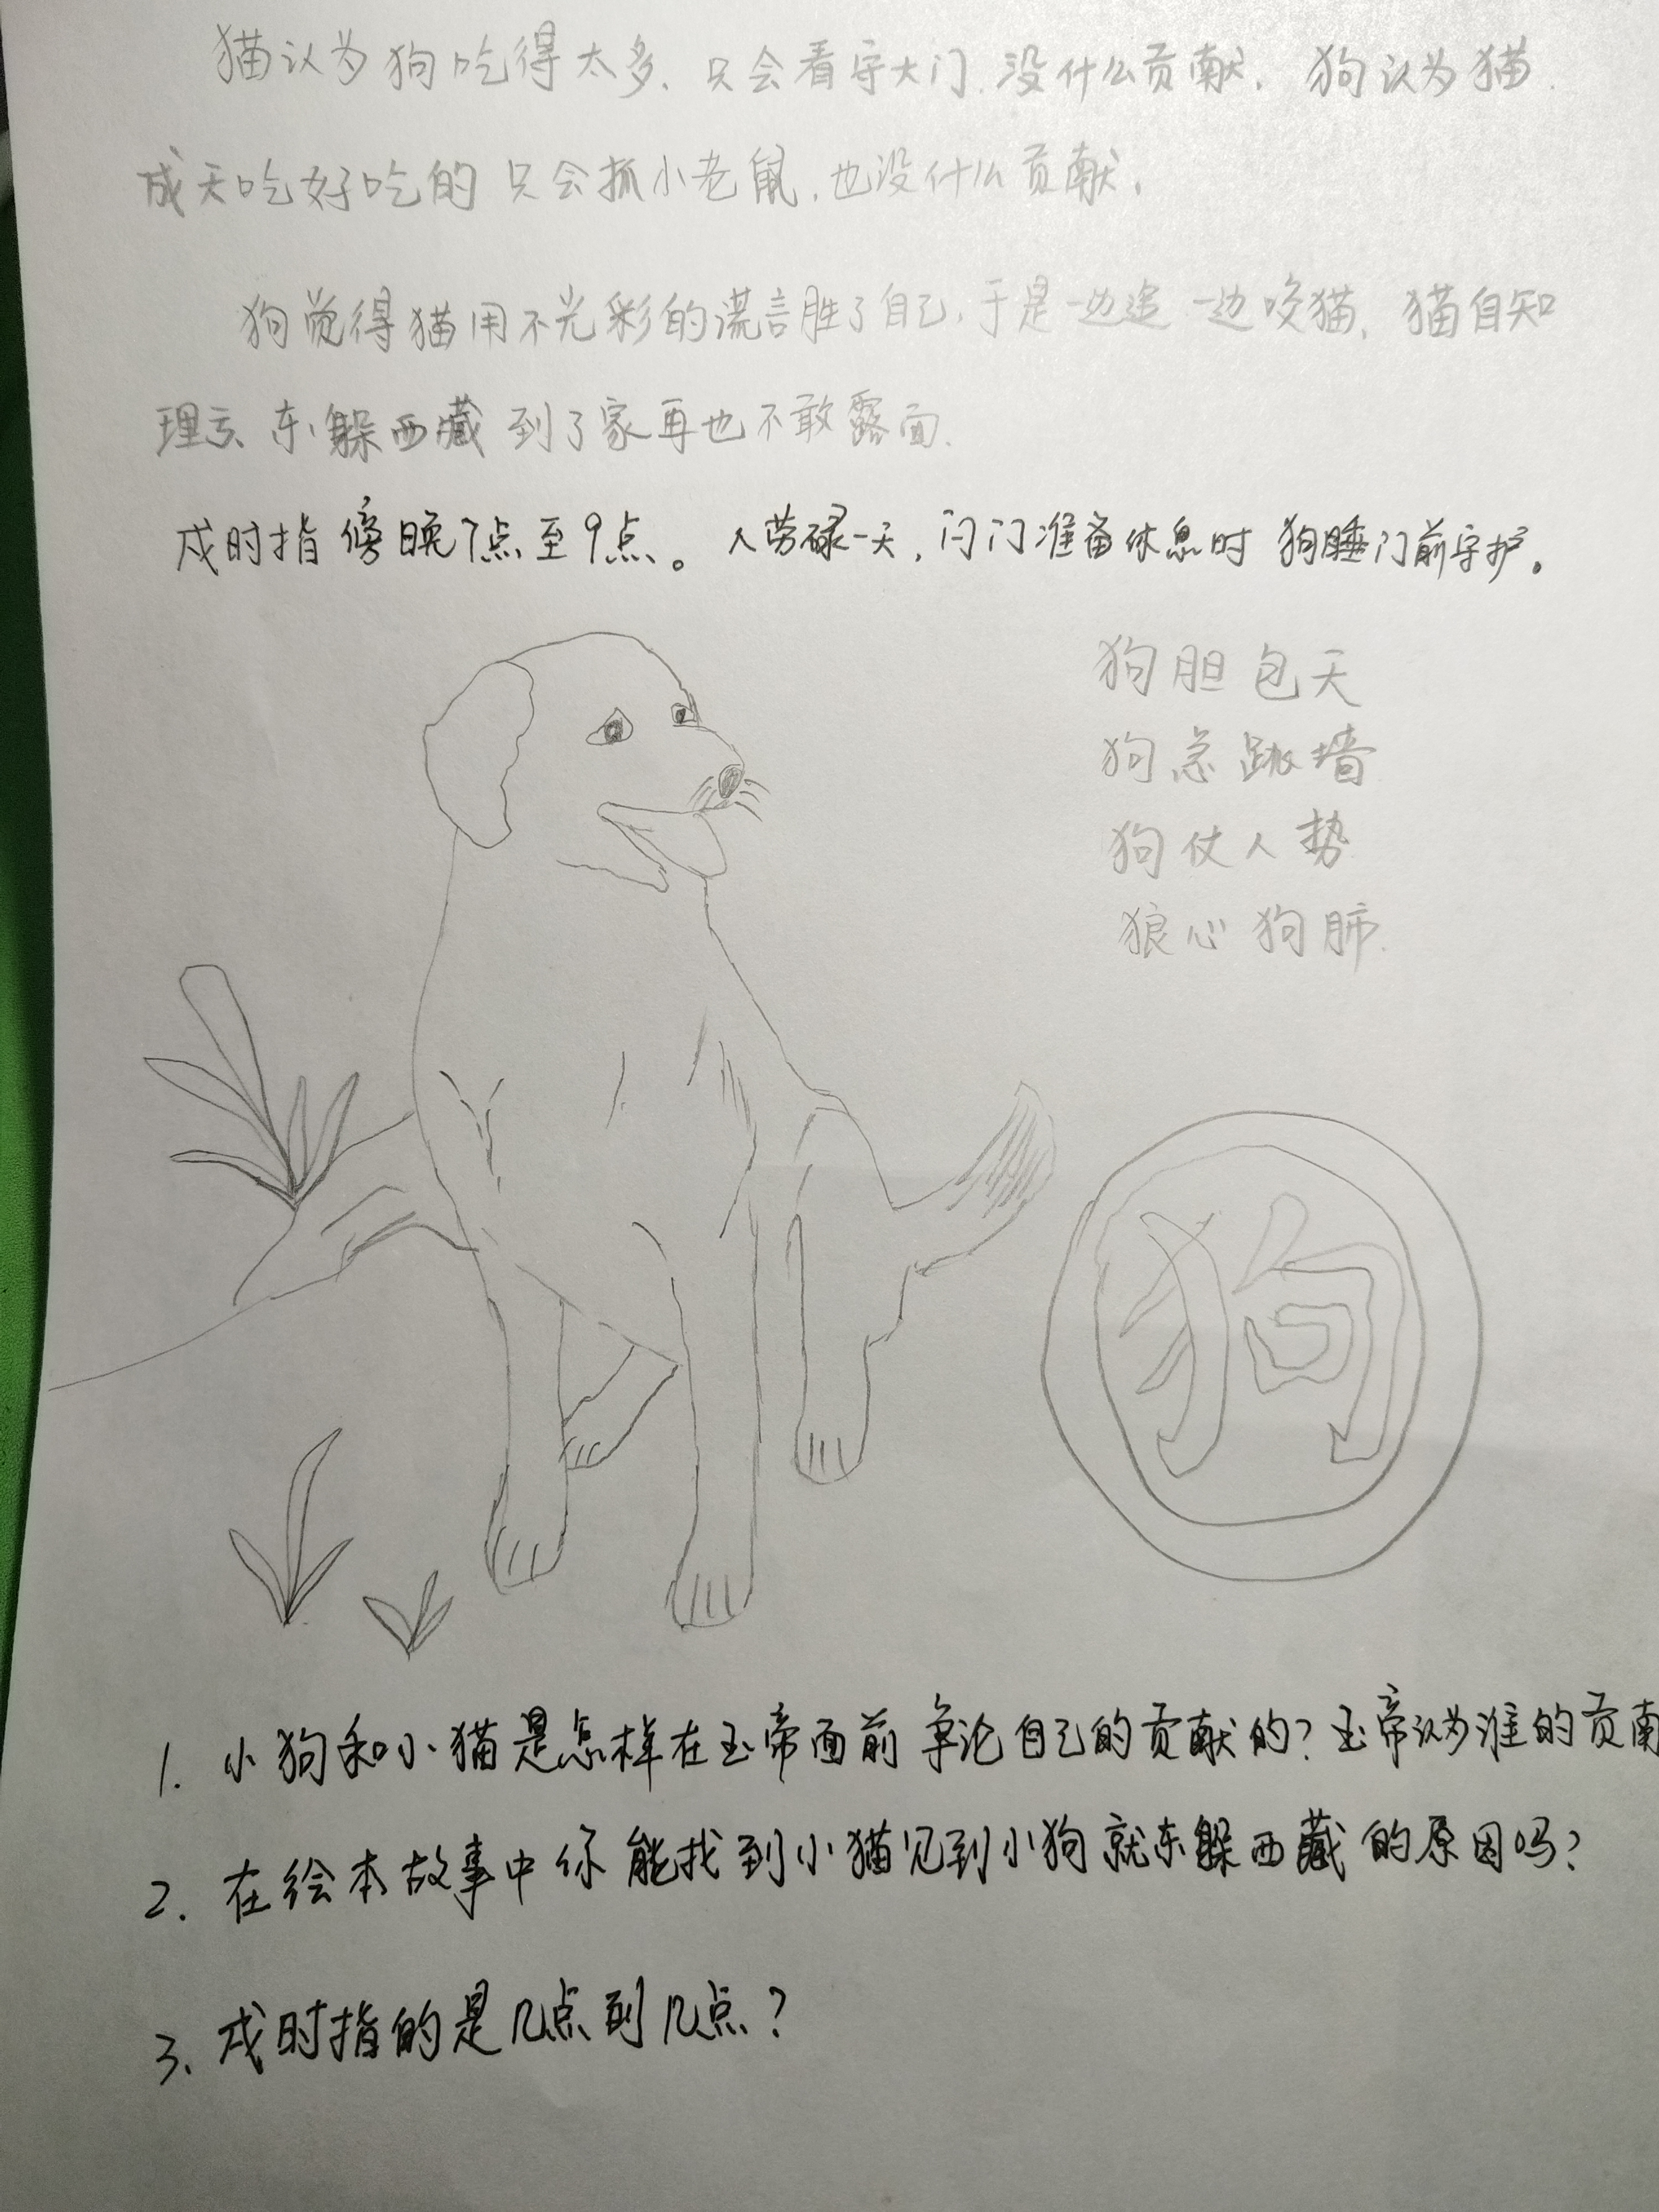 猫认为狗吃得太多、只会看守大门.没什么贡献. 狗认为猫.
成天吃好吃的 只会抓小老鼠.也没什么贡献.
狗觉得猫用不光彩的谎言胜了自己,于是一边追 一边咬猫, 猫自知
理亏、东躲西藏 到了家再也不敢露面.
戌时指傍晚7点至9点。人劳碌一天,闩门准备休息时 狗睡门前守护。
狗胆包天
狗急跳墙
狗仗人势
狼心狗肺.
狗
1. 小狗和小猫是怎样在玉帝面前争论自己的贡献的?玉帝认为谁的贡
2. 在绘本故事中你能找到小猫见到小狗就东躲西藏的原因吗?
3. 戌时指的是几点到几点?